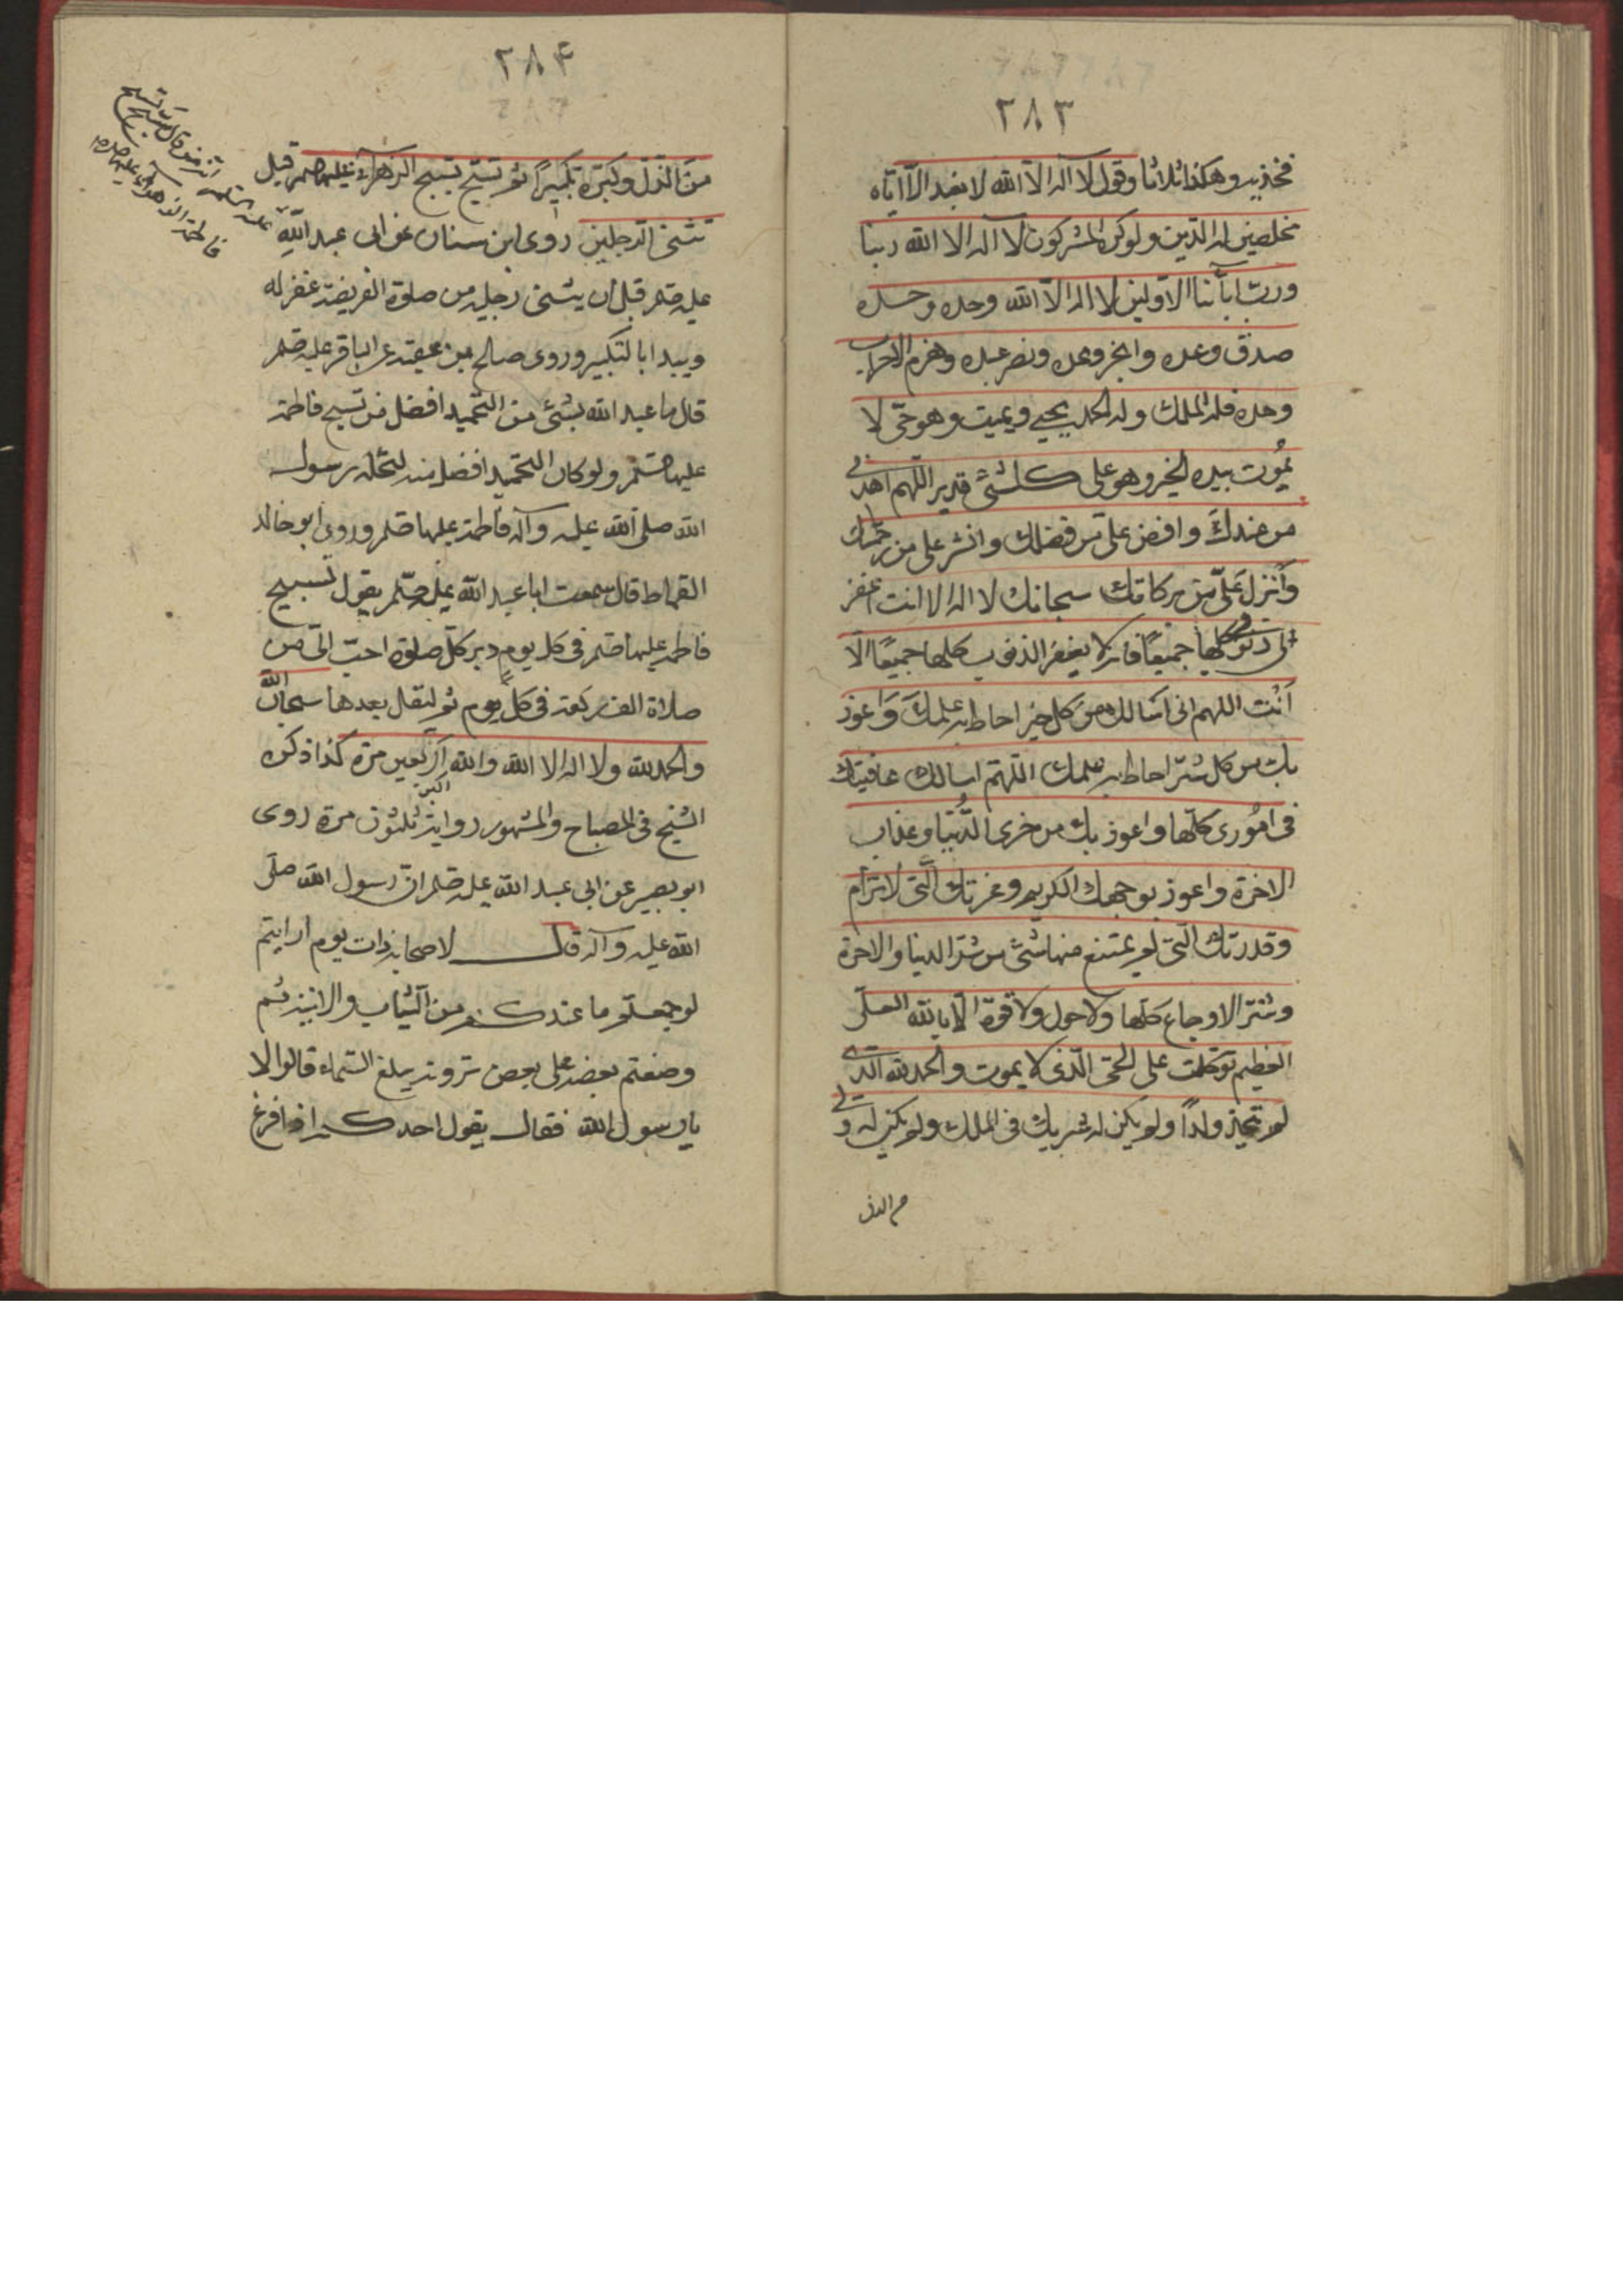 ٢٨٣
فخذيه وهكذا ثلاثا وقول لا اله الا الله لا نعبد الا اياه
مخلصين له الدين ولو كره المشركون لا اله الا الله ربنا
ورب ابائنا الاولين لا اله الا الله وحده وحده
صدق وعده وانجز وعده ونصر عبده وهزم الاحزاب
وحده فله الملك وله الحمد يحيي ويميت وهو حي لا
يموت بيده الخير وهو على كل شئ قدير اللهم اهدني
من عندك وافض علي من فضلك وانشر علي من رحمتك
وانزل علي من بركاتك سبحانك لا اله الا انت اغفر
لي ذنوبي كلها جميعا فانه لا يغفر الذنوب كلها جميعا الا
انت اللهم اني اسالك من كل خير احاط به علمك واعوذ
بك من كل شر احاط به علمك اللهم اسالك عافيتك
في اموري كلها واعوذ بك من خزى الدنيا وعذاب
الاخرة واعوذ بوجهك الكريم وعزتك التي لا ترام
وقدرتك التي لم يمتنع منها شئ من شر الدنيا والاخرة
وشر الاوجاع كلها ولا حول ولا قوة الا بالله العلي
العظيم توكلت على الحي الذي لا يموت والحمد لله الذي
لم يتخذ ولدا ولم يكن له شريك في الملك ولم يكن له ولي
من الذل
٢٨٤
من الذل وكبره تكبيرا ثم تسبح تسبيح الزهراء عليها صلم قبل
تثنى الرجلين روى ابن سنان عن ابى عبد الله
عليه صلم قبل ان يثنى رجليه من صلوة الفريضة غفر له
ويبدا بالتكبير وروى صالح بن عقبة عن الباقر عليه صلم
قال ما عبد الله بشئ من التحميد افضل من تسبيح فاطمة
عليها صلم ولو كان التحميد افضل منه لنحله رسول
الله صلى الله عليه وآله فاطمة عليها صلم وروى ابو خالد
القماط قال سمعت ابا عبد الله عليه صلم يقول تسبيح
فاطمة عليها صلم في كل يوم دبر كل صلوة احب الي من
صلاة الف ركعة في كل يوم ثم ليقل بعدها سبحان الله
والحمد لله ولا اله الا الله والله اكبر اربعين مرة كذا ذكره
الشيخ في المصباح والمشهور رواية ثلثون مرة روى
ابو بصير عن ابى عبد الله عليه صلم ان رسول الله صلى
الله عليه وآله قال لاصحابه ذات يوم ارايتم
لو جمعتم ما عندكم من الثياب والانية ثم
وضعتم بعضه على بعض ترونه يبلغ السماء قالوا لا
يا رسول الله فقال يقول احدكم اذا فرغ
عليه السلم انه من قال سبح تسبيح
فاطمة الزهراء عليها